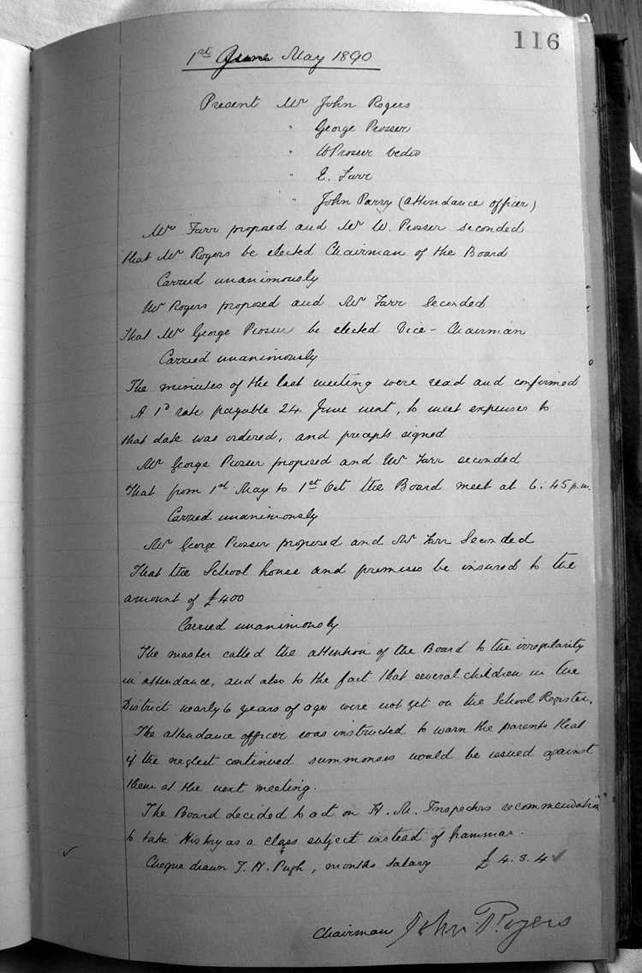 116
1st June May 1890
Present Mr John Rogers
" George Prosser
" W Prosser
" E. Farr
" John Parry (attendance officer)
Mr Farr proposed and Mr W. Prosser seconded
that Mr Rogers be elected Chairman of the Board
Carried unanimously
Mr Rogers proposed and Mr Farr Seconded
That Mr George Prosser be elected Vice-Chairman
Carried unanimously
The minutes of the last meeting were read and confirmed
A 1d rate payable 24 June next, to meet expenses to
that date was ordered, and precepts signed
Mr George Prosser proposed and Mr Farr seconded
That from 1st May to 1st Oct the Board meet at 6:45 p.m.
Carried unanimously
Mr George Prosser proposed and Mr Farr Seconded
That the School house and premises be insured to the
amount of £400
Carried unanimously
The master called the attention of the Board to the irregularity
in attendance, and also to the fact that several children in the
District nearly 6 years of age were not yet on the School Register.
The attendance officer was instructed to warn the parents that
if the neglect continued summonses would be issued against
them at the next meeting.
The Board decided to act on H. M. Inspectors recommendation
to take History as a class subject instead of Grammar.
Cheque drawn T. H. Pugh, months salary £4.3.4
Chairman John Rogers